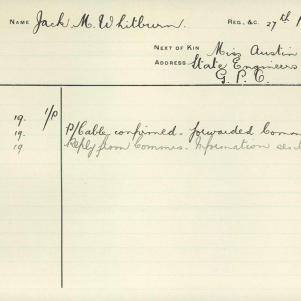 NAME Jack M. Whitburn. REG., &C. 27th
NEXT OF KIN Miss Austin
ADDRESS State Engineers
G. P. O.
19. 1/P
19. P/Cable confirmed - forwarded
19 Reply from Commis. Information